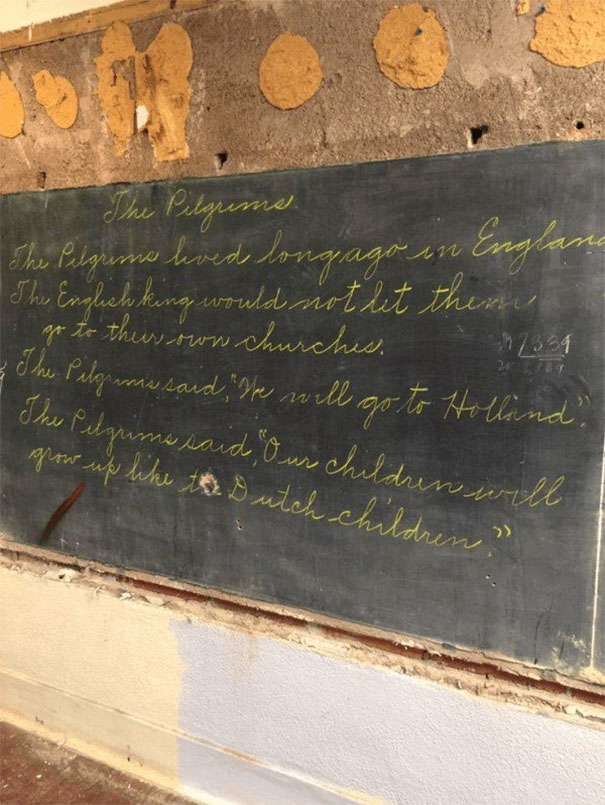 The Pilgrims.
The Pilgrims lived long ago in England
The English king would not let them
go to their own churches.
The Pilgrims said, "We will go to Holland".
The Pilgrims said, "Our children will
grow up like the Dutch children."